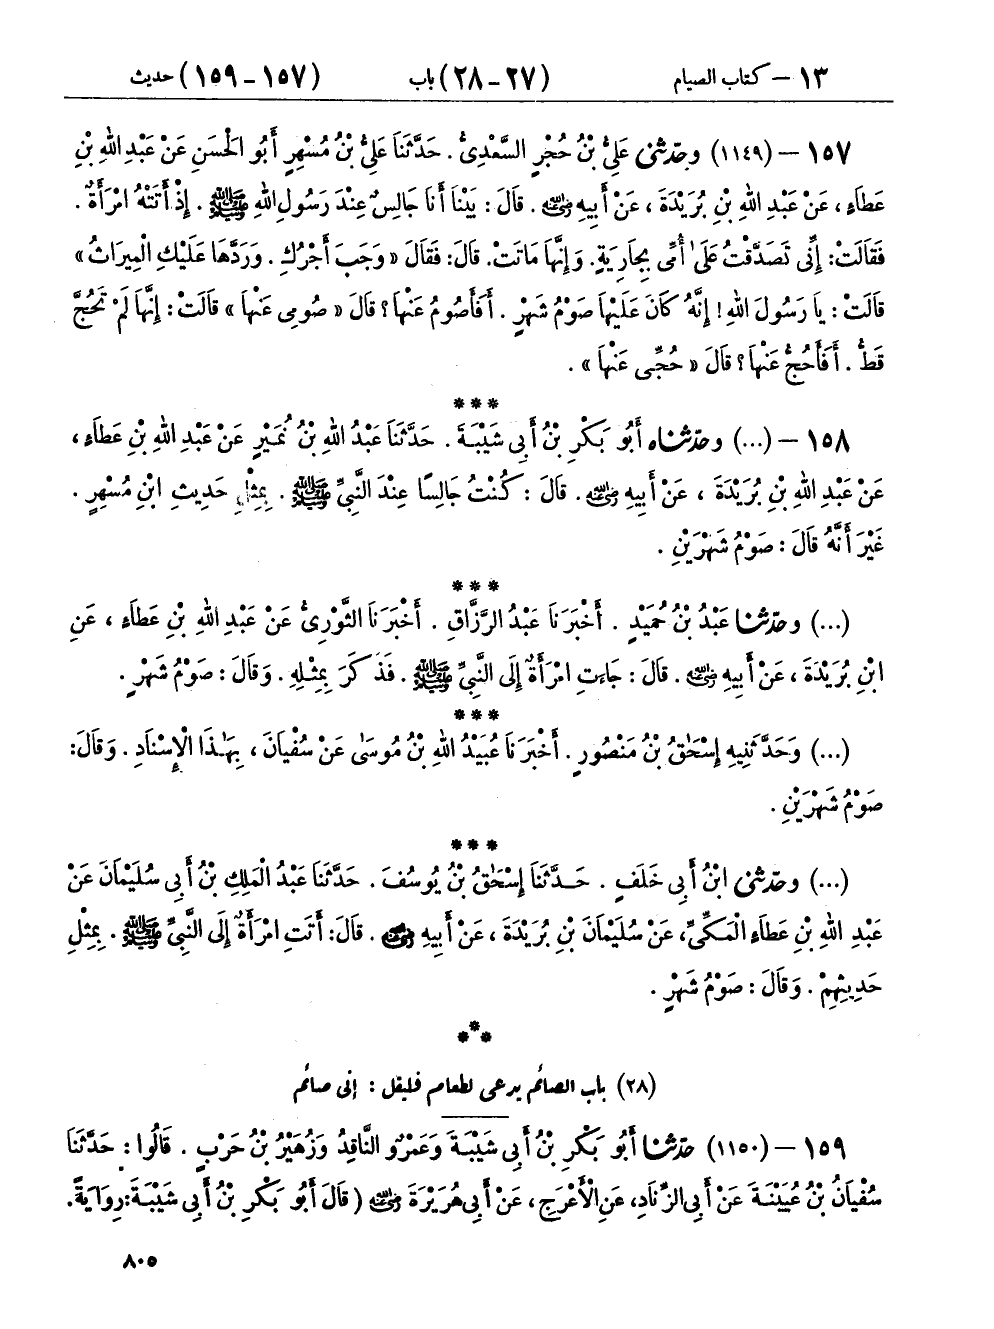 ١٣ – كتاب الصيام (٢٧ – ٢٨) باب (١٥٧ – ١٥٩) حديث
١٥٧ – (١١٤٩) وحدثنى عَلِىُّ بْنُ حُجْرٍ السَّعْدِىُّ . حَدَّثَنَا عَلِىُّ بْنُ مُسْهِرٍ أَبُو الْحَسَنِ عَنْ عَبْدِ اللهِ بْنِ
عَطَاءٍ ، عَنْ عَبْدِ اللهِ بْنِ بُرَيْدَةَ ، عَنْ أَبِيهِ رضى الله عنه . قَالَ : بَيْنَا أَنَا جَالِسٌ عِنْدَ رَسُولِ اللهِ ﷺ . إِذْ أَتَتْهُ امْرَأَةٌ .
فَقَالَتْ : إِنِّى تَصَدَّقْتُ عَلَى أُمِّى بِجَارِيَةٍ . وَإِنَّهَا مَاتَتْ . قَالَ : فَقَالَ « وَجَبَ أَجْرُكِ . وَرَدَّهَا عَلَيْكِ الْمِيرَاثُ »
قَالَتْ : يَا رَسُولَ اللهِ ! إِنَّهُ كَانَ عَلَيْهَا صَوْمُ شَهْرٍ . أَفَأَصُومُ عَنْهَا ؟ قَالَ « صُومِى عَنْهَا » قَالَتْ : إِنَّهَا لَمْ تَحُجَّ
قَطُّ . أَفَأَحُجُّ عَنْهَا ؟ قَالَ « حُجِّى عَنْهَا » .
***
١٥٨ – (...) وحدثناه أَبُو بَكْرِ بْنُ أَبِى شَيْبَةَ . حَدَّثَنَا عَبْدُ اللهِ بْنُ نُمَيْرٍ عَنْ عَبْدِ اللهِ بْنِ عَطَاءٍ ،
عَنْ عَبْدِ اللهِ بْنِ بُرَيْدَةَ ، عَنْ أَبِيهِ رضى الله عنه . قَالَ : كُنْتُ جَالِسًا عِنْدَ النَّبِىِّ ﷺ . بِمِثْلِ حَدِيثِ ابْنِ مُسْهِرٍ .
غَيْرَ أَنَّهُ قَالَ : صَوْمُ شَهْرَيْنِ .
***
(...) وحدثنا عَبْدُ بْنُ حُمَيْدٍ . أَخْبَرَنَا عَبْدُ الرَّزَّاقِ . أَخْبَرَنَا الثَّوْرِىُّ عَنْ عَبْدِ اللهِ بْنِ عَطَاءٍ ، عَنِ
ابْنِ بُرَيْدَةَ ، عَنْ أَبِيهِ رضى الله عنه . قَالَ : جَاءَتِ امْرَأَةٌ إِلَى النَّبِىِّ ﷺ . فَذَكَرَ بِمِثْلِهِ . وَقَالَ : صَوْمُ شَهْرٍ .
***
(...) وَحَدَّثَنِيهِ إِسْحَاقُ بْنُ مَنْصُورٍ . أَخْبَرَنَا عُبَيْدُ اللهِ بْنُ مُوسَى عَنْ سُفْيَانَ ، بِهَذَا الْإِسْنَادِ . وَقَالَ :
صَوْمُ شَهْرَيْنِ .
***
(...) وحدثنى ابْنُ أَبِى خَلَفٍ . حَدَّثَنَا إِسْحَاقُ بْنُ يُوسُفَ . حَدَّثَنَا عَبْدُ الْمَلِكِ بْنُ أَبِى سُلَيْمَانَ عَنْ
عَبْدِ اللهِ بْنِ عَطَاءٍ الْمَكِّىِّ ، عَنْ سُلَيْمَانَ بْنِ بُرَيْدَةَ ، عَنْ أَبِيهِ رضى الله عنه . قَالَ : أَتَتِ امْرَأَةٌ إِلَى النَّبِىِّ ﷺ . بِمِثْلِ
حَدِيثِهِمْ . وَقَالَ : صَوْمُ شَهْرٍ .
***
(٢٨) باب الصائم يدعى لطعام فليقل : إنى صائم
١٥٩ – (١١٥٠) حدثنا أَبُو بَكْرِ بْنُ أَبِى شَيْبَةَ وَعَمْرٌو النَّاقِدُ وَزُهَيْرُ بْنُ حَرْبٍ . قَالُوا : حَدَّثَنَا
سُفْيَانُ بْنُ عُيَيْنَةَ عَنْ أَبِى الزِّنَادِ ، عَنِ الْأَعْرَجِ ، عَنْ أَبِى هُرَيْرَةَ رضى الله عنه ( قَالَ أَبُو بَكْرِ بْنُ أَبِى شَيْبَةَ : رِوَايَةً .
٨٠٥